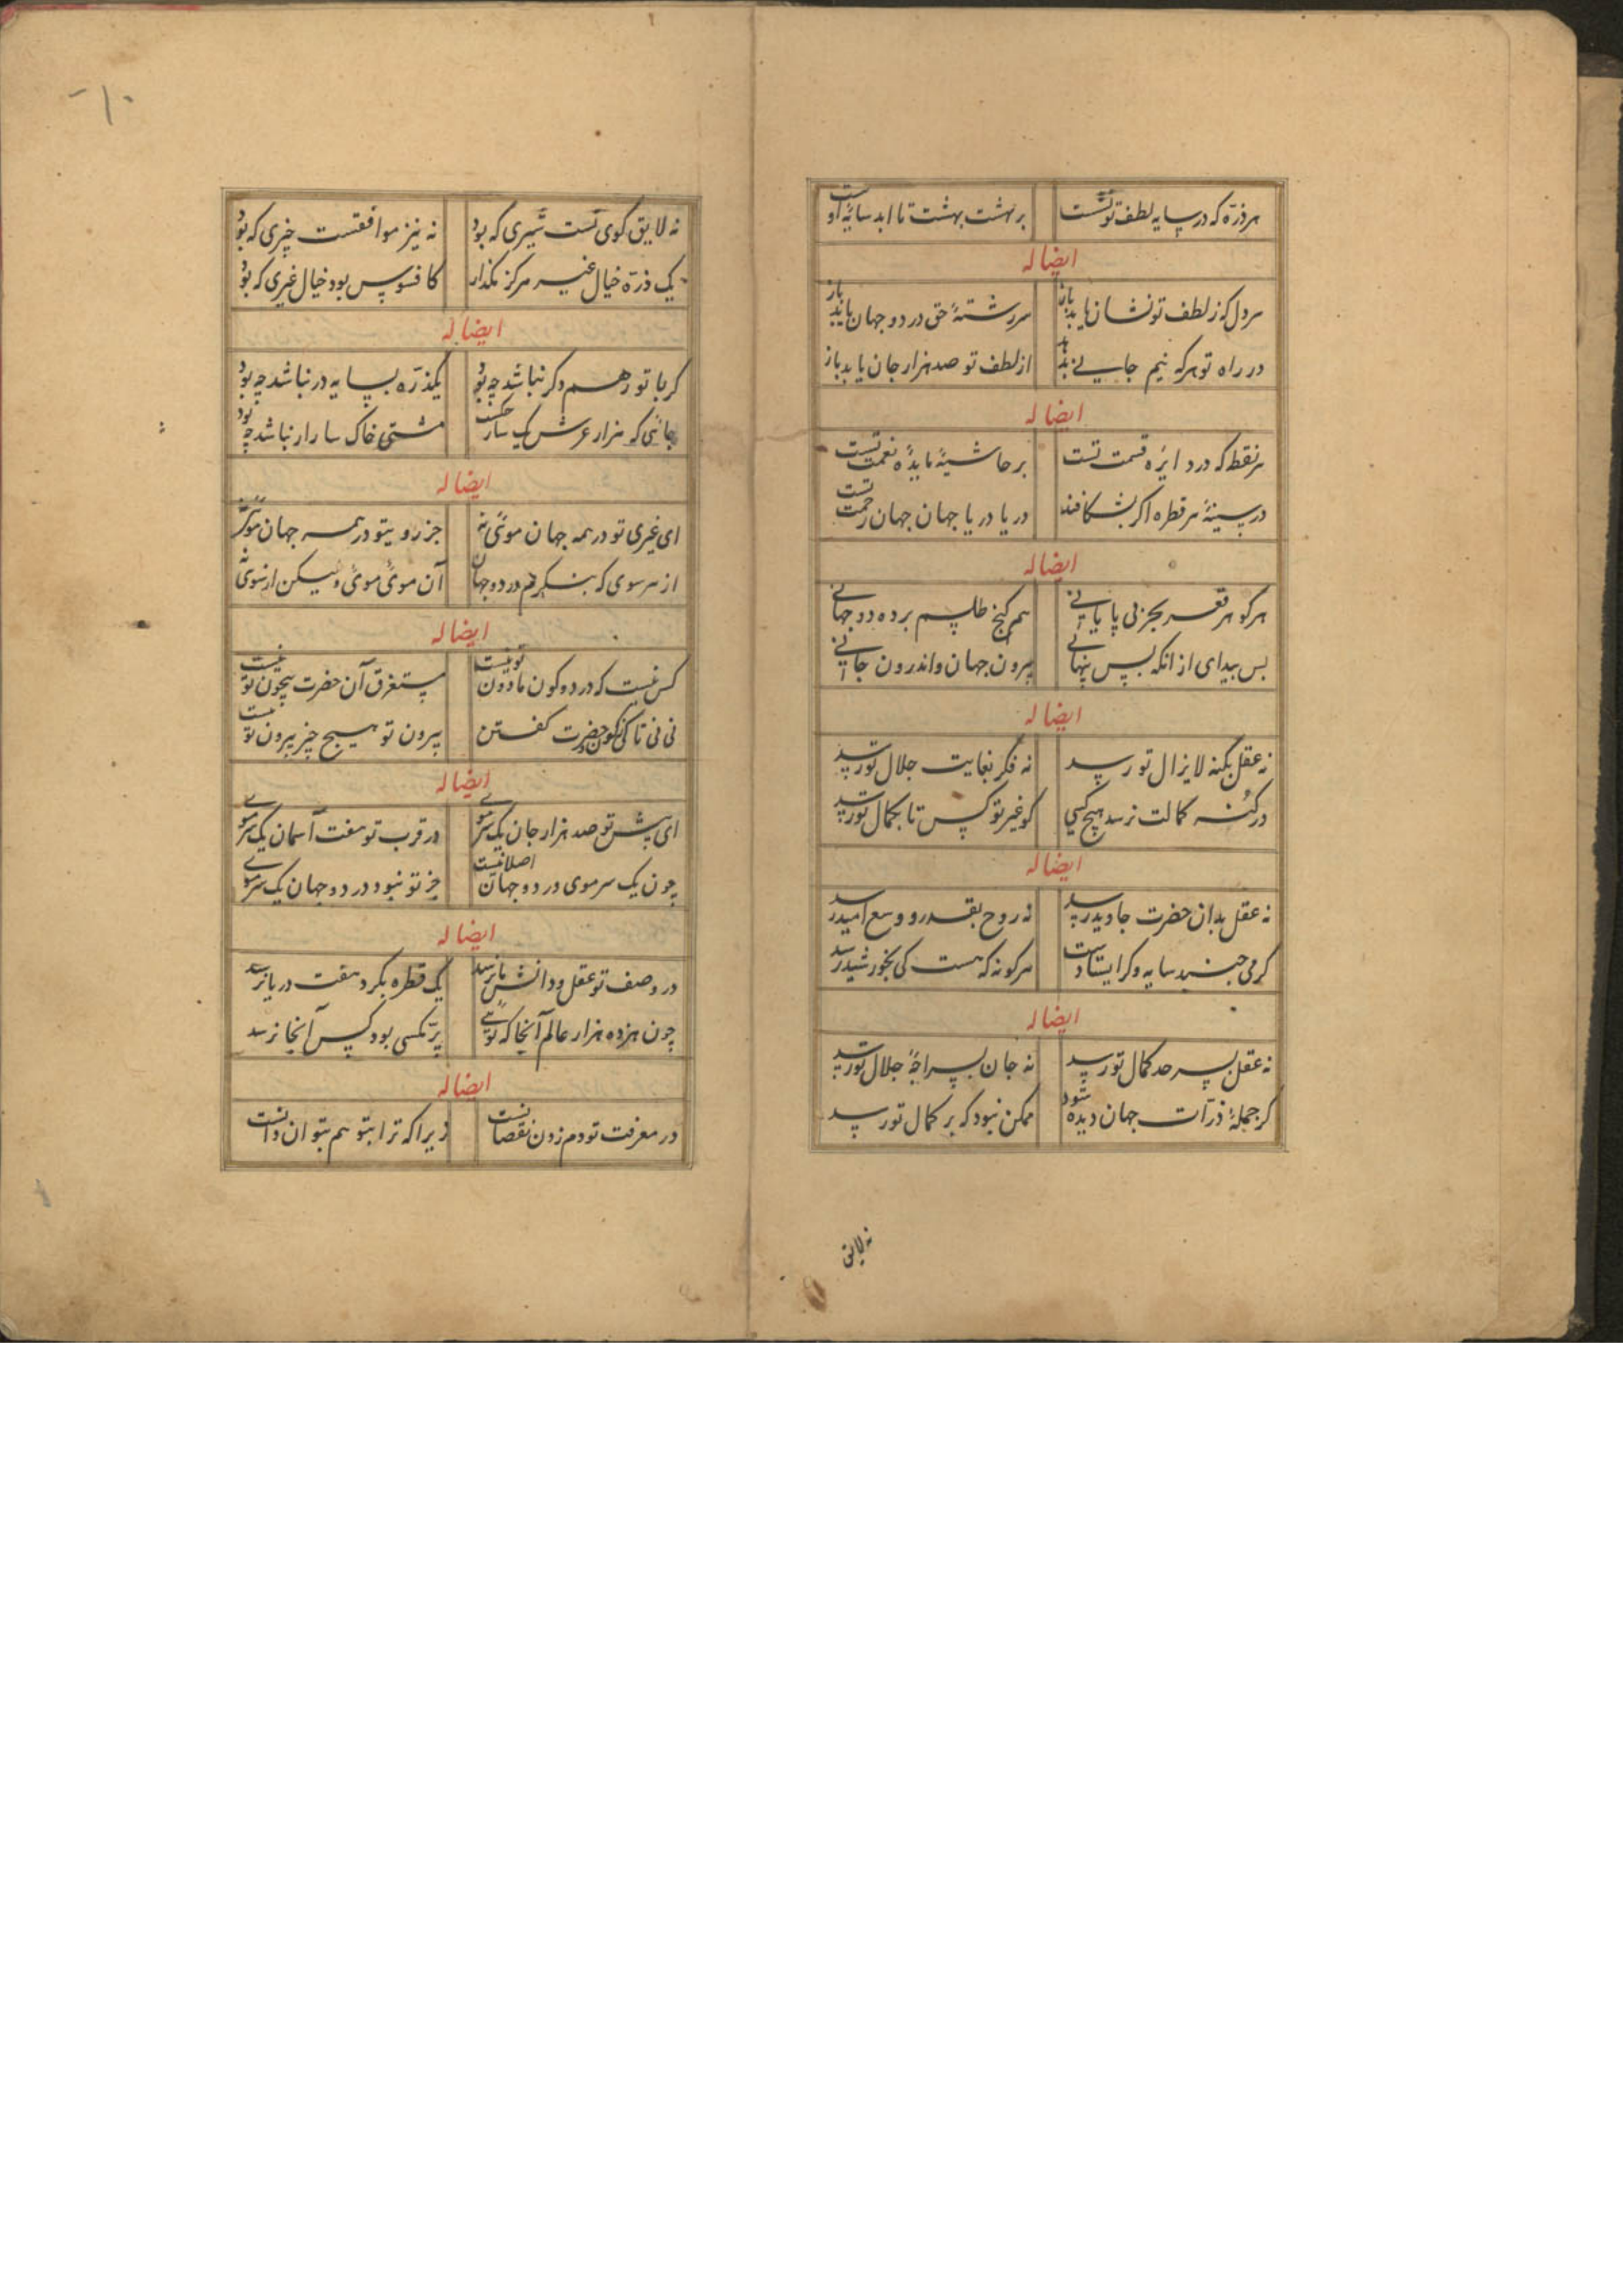 هر ذره که در سایه لطف تو نشست
بر هشت بهشت تا ابد سایهٔ اوست
ایضا له
هر دل که ز لطف تو نشان یابد باز
سررشتهٔ حق در دو جهان یابد باز
در راه تو هر که نیم جانی بدهد
از لطف تو صد هزار جان یابد باز
ایضا له
هر نقطه که در دایره قسمت تست
بر حاشیهٔ مایدهٔ نعمت تست
در سینهٔ هر قطره اگر بشکافند
دریا دریا جهان جهان رحمت تست
ایضا له
هر گوهر قعر بحر بی پایانی
هم گنج طلسم پرده دو جهانی
بس پیدای از انکه بس پنهانی
بیرون جهان و اندرون جانی
ایضا له
نه عقل بکنه لایزال تو رسد
نه فکر بغایت جلال تو رسد
در کنه کمالت نرسد هیچ کسی
کو غیر تو کس تا بکمال تو رسد
ایضا له
نه عقل بدان حضرت جاوید رسد
نه روح بقدر و وسع امید رسد
گر می جنبد سایه و گر ایستادست
هر گونه که هست کی بخورشید رسد
ایضا له
نه عقل بسر حد کمال تو رسد
نه جان بسراچهٔ جلال تو رسد
گر جملهٔ ذرات جهان دیده شود
ممکن نبود که بر کمال تو رسد
نه لایق
نه لایق کوی تست سیری که بود
نه نیز موافقست چیزی که بود
یک ذره خیال غیر هرگز مگذار
کافسوس بود خیال غیری که بود
ایضا له
گر با تو رهم و گر نباشد چه بود
یکذره بسایه در نباشد چه بود
جائی که هزار عرش یک سار خکست
مشتی خاک سار ار نباشد چه بود
ایضا له
ای غیری تو در همه جهان موئی نه
جز رویتو در همه جهان
از هر سوی که بنگرم در دو جهان
آن موئی موئی ولیکن از سوئی نه
ایضا له
کس نیست که در دو کون مادون تو نیست
مستغرق آن حضرت بیچون تو نیست
نی نی تا کی کون و حضرت گفتن
بیرون تو هیچ چیز بیرون تو نیست
ایضا له
ای پیش تو صد هزار جان یک سر موی
در قرب تو هفت آسمان یک سر موی
چون یک سر موی در دو جهان اصلا نیست
جز تو نبود در دو جهان یک سر موی
ایضا له
در وصف تو عقل و دانش ما نرسد
یک قطره بگرد هفت دریا نرسد
چون هژده هزار عالم آنجا که توئی
پر مگسی بود کس آنجا نرسد
ایضا له
در معرفت تو دم زدن نقصانست
زیرا که ترا بتو هم بتوان دانست